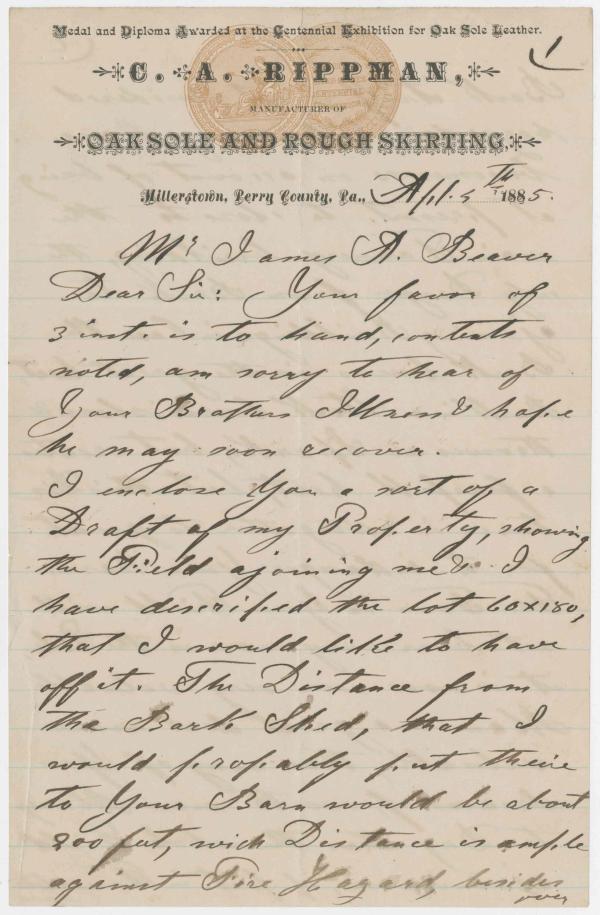 Medal and Diploma Awarded at the Centennial Exhibition for Oak Sole Leather.
1
C. A. RIPPMAN,
MANUFACTURER OF
OAK SOLE AND ROUGH SKIRTING,
Millerstown, Perry County, Pa., Apl. 5th 1885.
Mr James A. Beaver
Dear Sir: Your favor of
3 inst. is to hand, contents
noted, am sorry to hear of
Your Brothers Illness & hope
he may soon recover.
I enclose You a sort of a
Draft of my Property, showing
the Field ajoining me & I
have descriped the lot 60x180,
that I would like to have
off it. The Distance from
the Bark Shed, that I
would propably put there
to Your Barn would be about
200 feet, wich Distance is ample
against Fire Hazard, besides
over